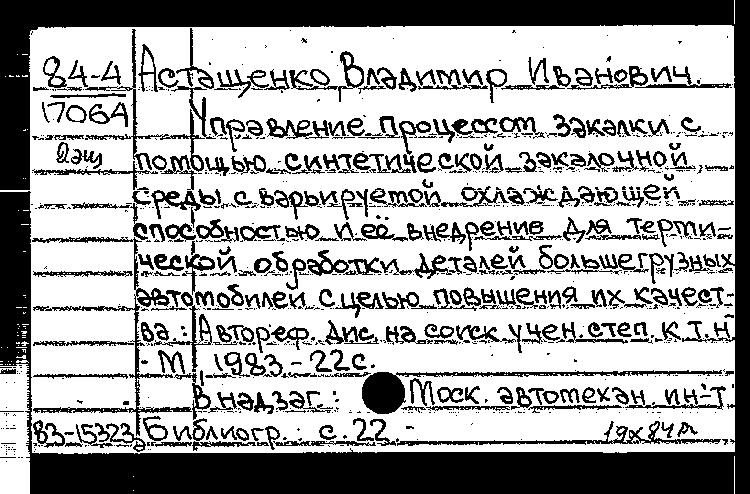 84-4 Астащенко, Владимир Иванович.
17064 Управление процессом закалки с
помощью синтетической закалочной
среды с варьируемой охлаждающей
способностью и её внедрение для терми-
ческой обработки деталей большегрузных
автомобилей с целью повышения их качест-
ва: Автореф. дис. на соиск. учен. степ. к.т.н
- М, 1983 - 22 с.
В надзаг.: Моск. автомехан. ин-т
83-15323 Библиогр.: с. 22 -